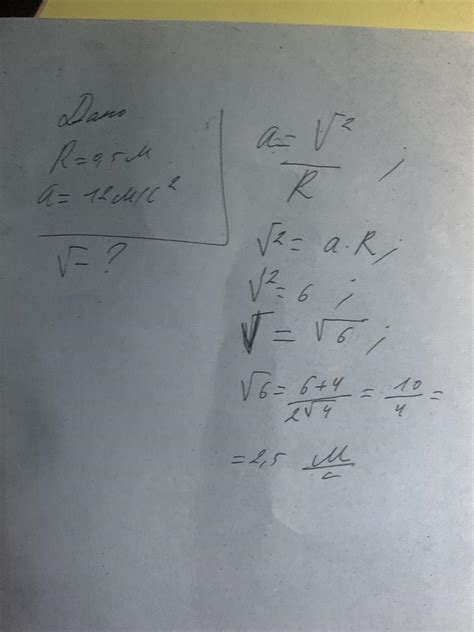 Дано
R = 0,5 м
a = 12 м/с²
V = ?
a = V²/R ;
V² = a · R ;
V² = 6 ;
V = √6 ;
√6 = (6+4)/(2√4) = 10/4 =
= 2,5 м/с